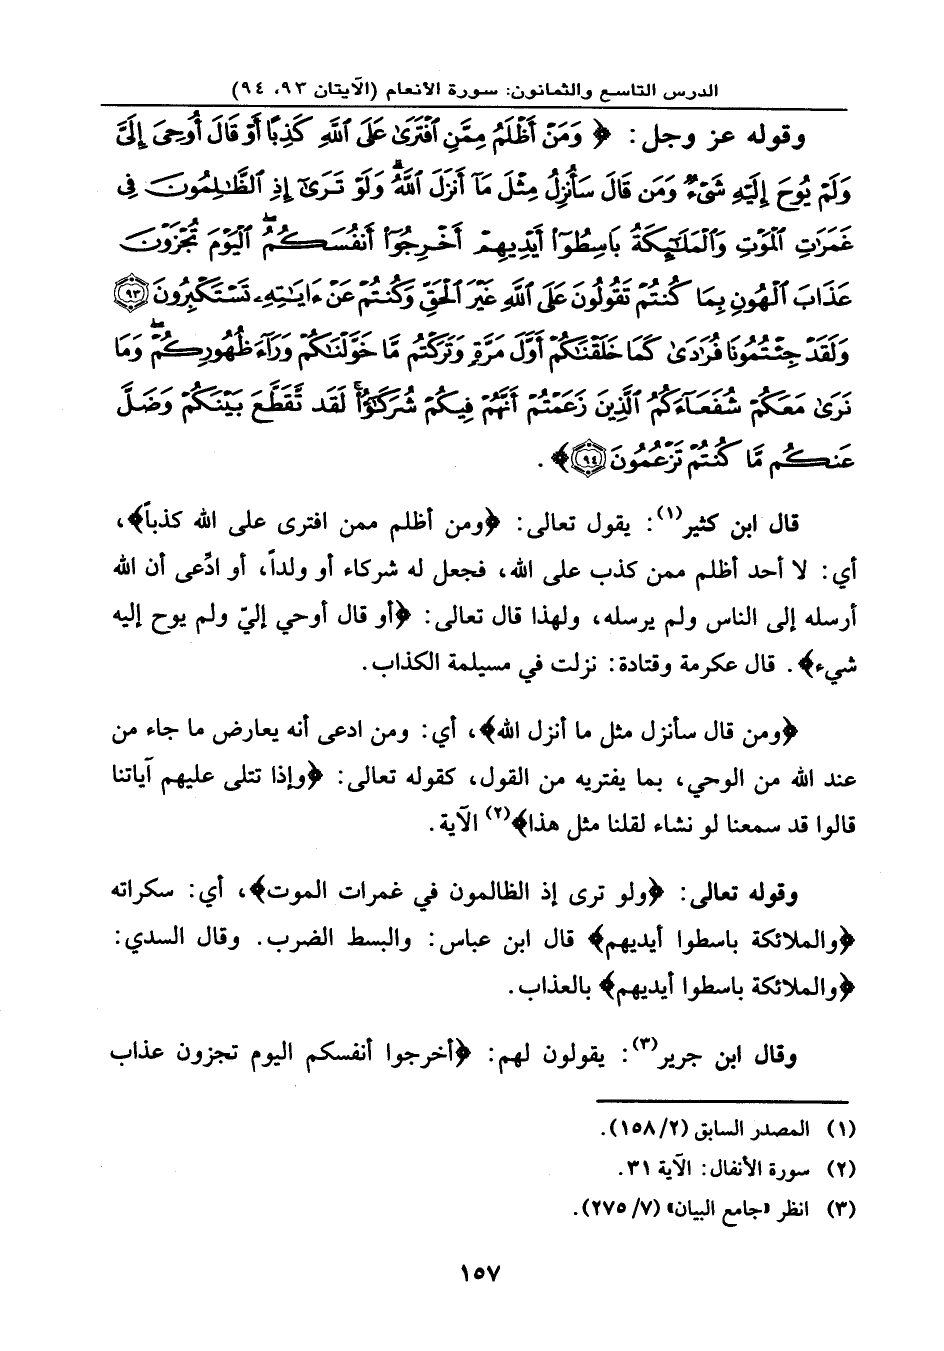 الدرس التاسع والثمانون: سورة الأنعام (الآيتان ٩٣، ٩٤)
وقوله عز وجل: ﴿ وَمَنْ أَظْلَمُ مِمَّنِ ٱفْتَرَىٰ عَلَى ٱللَّهِ كَذِبًا أَوْ قَالَ أُوحِىَ إِلَىَّ
وَلَمْ يُوحَ إِلَيْهِ شَىْءٌ وَمَن قَالَ سَأُنزِلُ مِثْلَ مَآ أَنزَلَ ٱللَّهُ ۗ وَلَوْ تَرَىٰٓ إِذِ ٱلظَّٰلِمُونَ فِى
غَمَرَٰتِ ٱلْمَوْتِ وَٱلْمَلَٰٓئِكَةُ بَاسِطُوٓا۟ أَيْدِيهِمْ أَخْرِجُوٓا۟ أَنفُسَكُمُ ۖ ٱلْيَوْمَ تُجْزَوْنَ
عَذَابَ ٱلْهُونِ بِمَا كُنتُمْ تَقُولُونَ عَلَى ٱللَّهِ غَيْرَ ٱلْحَقِّ وَكُنتُمْ عَنْ ءَايَٰتِهِۦ تَسْتَكْبِرُونَ ٩٣
وَلَقَدْ جِئْتُمُونَا فُرَٰدَىٰ كَمَا خَلَقْنَٰكُمْ أَوَّلَ مَرَّةٍ وَتَرَكْتُم مَّا خَوَّلْنَٰكُمْ وَرَآءَ ظُهُورِكُمْ ۖ وَمَا
نَرَىٰ مَعَكُمْ شُفَعَآءَكُمُ ٱلَّذِينَ زَعَمْتُمْ أَنَّهُمْ فِيكُمْ شُرَكَٰٓؤُا۟ ۚ لَقَد تَّقَطَّعَ بَيْنَكُمْ وَضَلَّ
عَنكُم مَّا كُنتُمْ تَزْعُمُونَ ٩٤ ﴾.
قال ابن كثير(١): يقول تعالى: ﴿ومن أظلم ممن افترى على الله كذباً﴾،
أي: لا أحد أظلم ممن كذب على الله، فجعل له شركاء أو ولداً، أو ادَّعى أن الله
أرسله إلى الناس ولم يرسله، ولهذا قال تعالى: ﴿أو قال أوحي إليّ ولم يوح إليه
شيء﴾. قال عكرمة وقتادة: نزلت في مسيلمة الكذاب.
﴿ومن قال سأنزل مثل ما أنزل الله﴾، أي: ومن ادعى أنه يعارض ما جاء من
عند الله من الوحي، بما يفتريه من القول، كقوله تعالى: ﴿وإذا تتلى عليهم آياتنا
قالوا قد سمعنا لو نشاء لقلنا مثل هذا﴾(٢) الآية.
وقوله تعالى: ﴿ولو ترى إذ الظالمون في غمرات الموت﴾، أي: سكراته
﴿والملائكة باسطوا أيديهم﴾ قال ابن عباس: والبسط الضرب. وقال السدي:
﴿والملائكة باسطوا أيديهم﴾ بالعذاب.
وقال ابن جرير(٣): يقولون لهم: ﴿أخرجوا أنفسكم اليوم تجزون عذاب
(١) المصدر السابق (٢/١٥٨).
(٢) سورة الأنفال: الآية ٣١.
(٣) انظر «جامع البيان» (٧/٢٧٥).
١٥٧